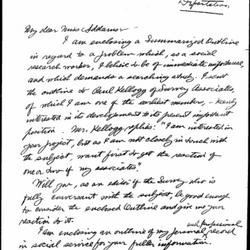 Deportation
My dear Miss Addams:
I am enclosing a Summarized Outline
in regard to a problem which, as a social
research worker, I believe to be of immediate importance,
and which demands a searching study. I sent
the outline to Paul Kellogg of Survey Associates,
of which I am one of the earliest members, - keenly
interested in its development to its present important
position. Mr. Kellogg, replied: "I am interested in
your project, but as I am not closely in touch with
the subject, want first to get the reaction of
one or two of my associates."
Will you, as an editor of the Survey who is
fully conversant with the subject, be good enough
to consider the enclosed Outline and give me your
reaction to it.
I am enclosing an outline of my personal record
and professional
in social service for your fuller information.